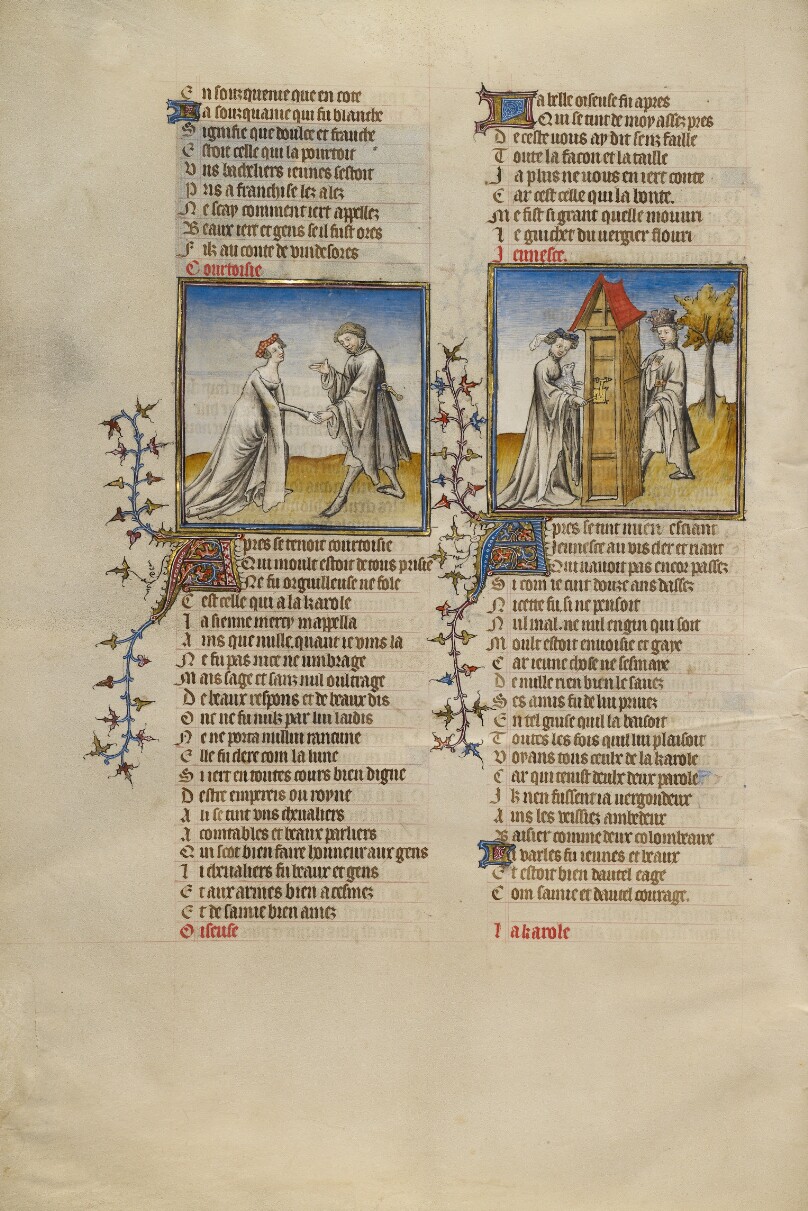 En sourquenie que en cote
La sourquanie qui fu blanche
Signifie que doulce et franche
Estoit celle qui la portoit
Uns bacheliers iennes sestoit
Pris a franchise lez alez
Ne scay comment iert appellez
Beaux iert et gens seil fust ores
Filz au conte de vindesores
Courtoisie
Apres se tenoit courtoisie
Qui moult estoit de tous prisie
Ne fu orguilleuse ne fole
Cest celle qui a la karole
La sienne mercy mappella
Ains que nulle. quant ie vins la
Ne fu pas nice ne umbrage
Mais sage et sanz nul oultrage
De beaux respons et de beaux dis
Onc ne fu nulz par lui laidis
Ne ne porta nullui rancune
Elle fu clere com la lune
Si iert en toutes cours bien digne
Destre empereis ou royne
A li se tint uns chevaliers
Acointables et beaux parliers
Qui scot bien faire honneur aux gens
Li chevaliers fu beaux et gens
Et aux armes bien acesmez
Et de samie bien amez
Oiseuse
La belle oiseuse fu apres
Qui se tint de moy assez pres
De ceste vous ay dit senz faille
Toute la facon et la taille
Ja plus ne vous en iert conte
Car cest celle qui la bonte.
Me fist si grant quelle mouvri
Le guichet du vergier flouri
Jennesce.
Apres se tint mien esciant
Jennesce au vis cler et riant
Qui navoit pas encor passez
Si com ie cuit douze ans dassez
Nicete fu si ne pensoit
Nul mal. ne nul engin qui soit
Moult estoit envoisie et gaye
Car ienne chose ne sesmaye
De nulle rien bien le savez
Ses amis fu de lui privez
En tel guise quil la baisoit
Toutes les fois quil lui plaisoit
Voyans tous ceulx de la karole
Car qui tenist deulx deux parole
Ilz nen fussent ia vergondeux
Ains les veissiez ambedeux
Baisier comme deux colombeaux
Li varles fu iennes et beaux
Et estoit bien dautel eage
Com samie et dautel courage.
La karole